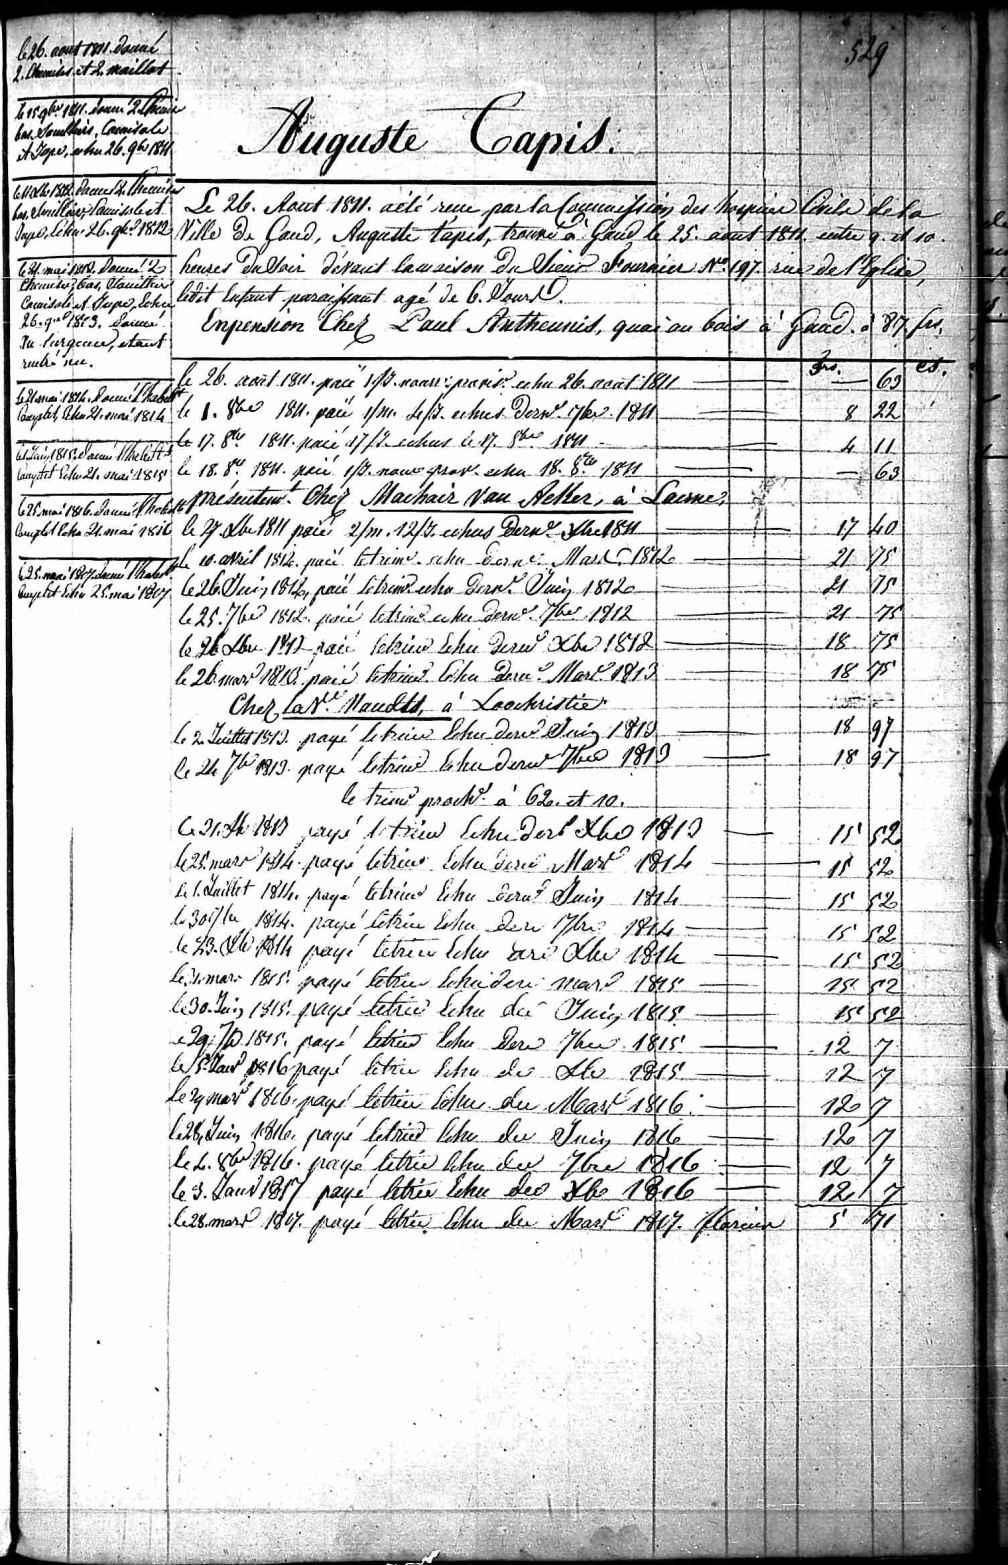 529
Auguste Tapis.
le 26. aout 1811. donné
2. Chemises et 2. maillot
le 15. 9bre 1811. donné 2. Chemises
bas, Souilliers, Camisole
et Jupe, echu 26. 9bre 1811
donné 2. Chemises
bas, Souilliers, Camisole et
Jupe, Echu 26. 9bre 1812
le 21. mai 1813. Donné 2
Chemises, bas, Souilliers
Camisole et Jupe, Echu
26. 1813. Donné
du
rentré
le 21. mai 1814. Donné l'habill.
Complet, Echu 21. mai 1814
1815. Donné l'habill.
Complet Echu 21. mai 1815
le 25. mai 1816. Donné l'habill.
Complet Echu 21. mai 1816
le 25. mai 1817. donné l'habill.
Complet Echu 25. mai 1817
Le 26. Aout 1811. a été reçu par la Commission des hospices Civils de la
Ville de Gand, Auguste tapis, trouvé à Gand le 25. aout 1811. entre 9. et 10.
heures du Soir devant la maison du Sieur Fournier No. 197. rue de l'Eglise,
ledit Enfant paraissant agé de 6. Jours.
En pension Chez Paul Antheunis, quai au bois à Gand. à 87. frs.
frs. cs.
le 26. août 1811. paié 1/J. nourr. provis. echu 26. août 1811 — 63
le 1. 8bre 1811. paié 1/m. 4/J. echus Dernr. 7bre 1811 8 22
le 17. 8bre 1811. paié 17/J. echus le 17. 8bre 1811 4 11
le 18. 8bre 1811. paié 1/J. nourr. prov. echu 18. 8bre 1811 — 63
présentemt. Chez Machair Van Acker, à Laerne.
le 27. Xbre 1811 paié 2/m. 12/J. echus Dernr. Xbre 1811 17 40
le 10. avril 1812. paié le trimr. echu dernr. Mars 1812 21 75
le 26. Juin 1812, paié le trimr. echu Dernr. Juin 1812 21 75
le 25. 7bre 1812. paié le trimr. echu dernr. 7bre 1812 21 75
le 26 Xbre 1812 paié le trimr Echu dernr Xbre 1812 18 75
le 26. mars 1813. paié le trimr. Echu Dernr. Mars 1813 18 75
Chez la Ve. à Loochristie
le 2. Juillet 1813. payé le trimr Echu dernr Juin 1813 18 97
le 24 7bre 1813. payé le trimr Echu dernr 7bre 1813 18 97
le trimr prochr. à 62. et 10.
le 31. Xbre 1813 payé le trimr Echu derr Xbre 1813 15 52
le 25. mars 1814. payé le trimr Echu dernr Mars 1814 15 52
le 1. Juillet 1814. payé le trimr Echu dernr Juin 1814 15 52
le 30 7bre 1814. payé le trimr Echu derr 7bre 1814 15 52
le 23. Xbre 1814 payé le trimr Echu derr Xbre 1814 15 52
le 31. mars 1815. payé le trimr Echu derr mars 1815 15 52
le 30. Juin 1815. payé le trimr Echu der Juin 1815 15 52
le 29. 7bre 1815. payé le trimr Echu derr 7bre 1815 12 7
le 5. Janv 1816 payé le trimr Echu der Xbre 1815 12 7
le 29 mars 1816. payé le trimr Echu der Mars 1816 12 7
le 28, Juin 1816. payé le trimr Echu der Juin 1816 12 7
le 2. 8bre 1816. payé le trimr Echu der 7bre 1816 12 7
le 3. Janv 1817 payé le trimr Echu der Xbre 1816 12 7
le 28. mars 1817. payé le trimr. Echu der Mars 1817. florins 5 71